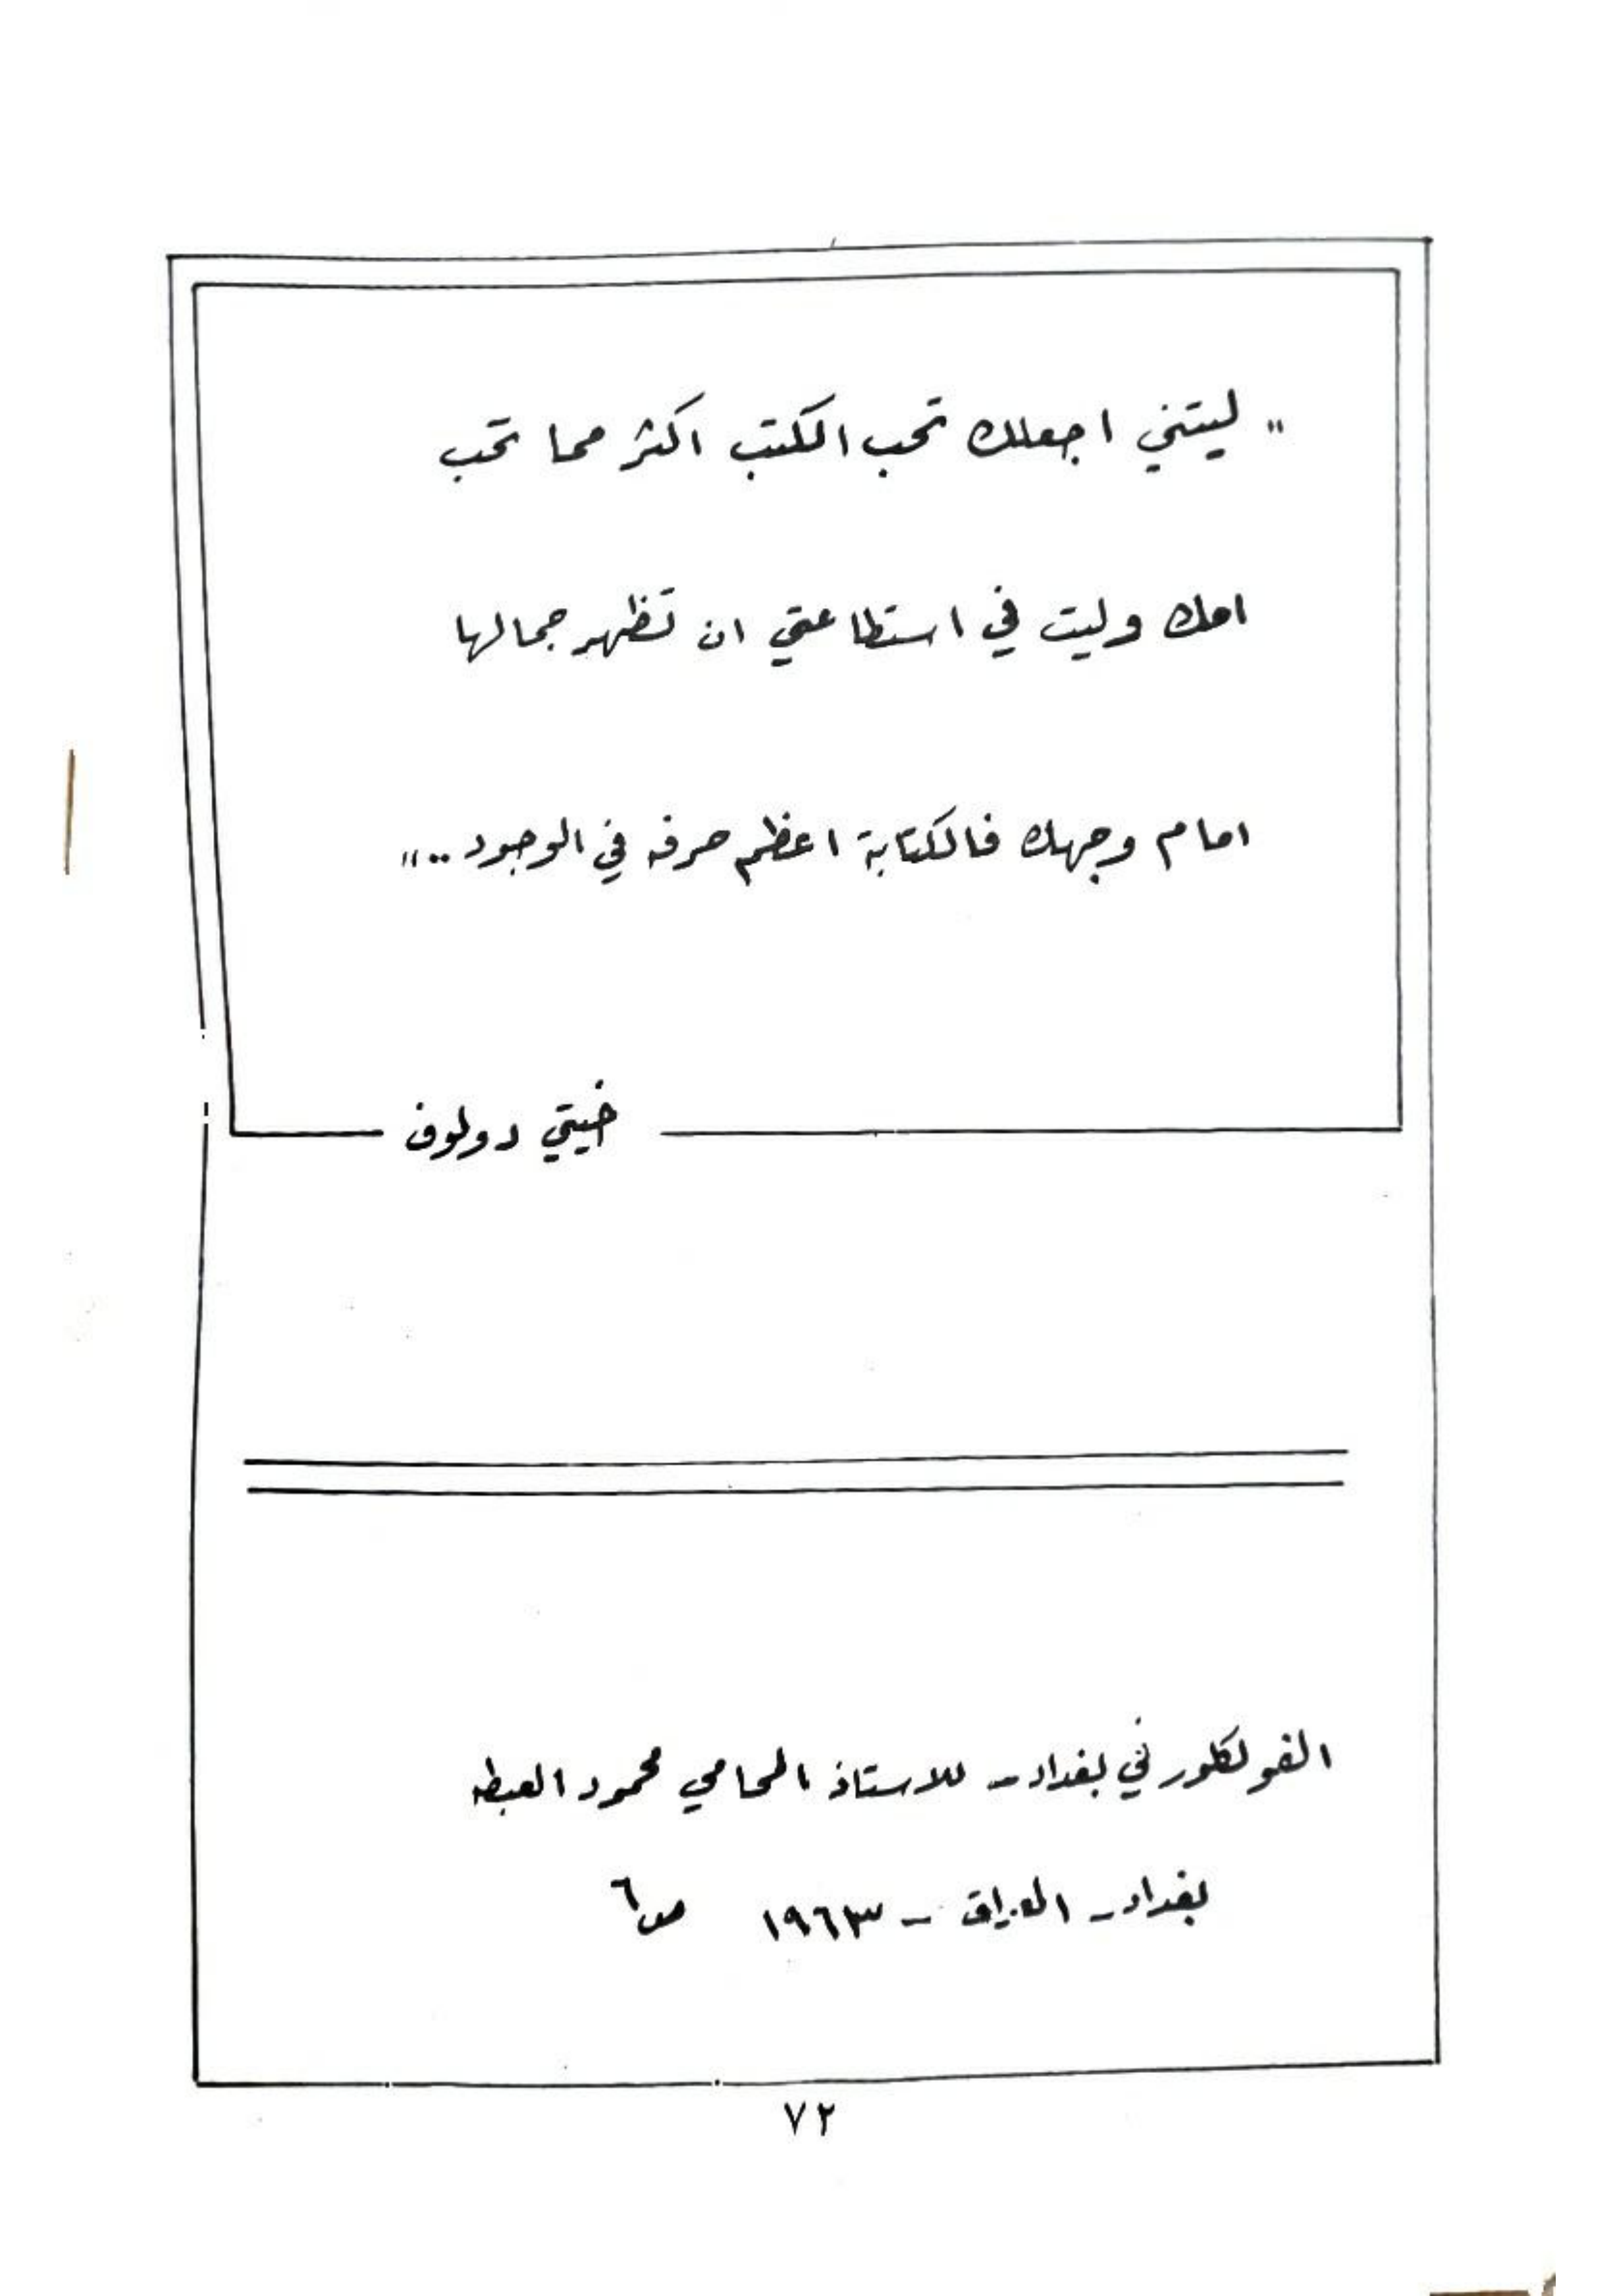 " ليتني اجعلك تحب الكتب اكثر مما تحب
امك وليت في استطاعتي ان تظهر جمالها
امام وجهك فالكتابة اعظم حرفه في الوجود .. "
خيتي دولوف
الفولكلور في بغداد - للاستاذ المحامي محمود العبطه
بغداد - العراق - ١٩٦٣ ص٦
٧٢